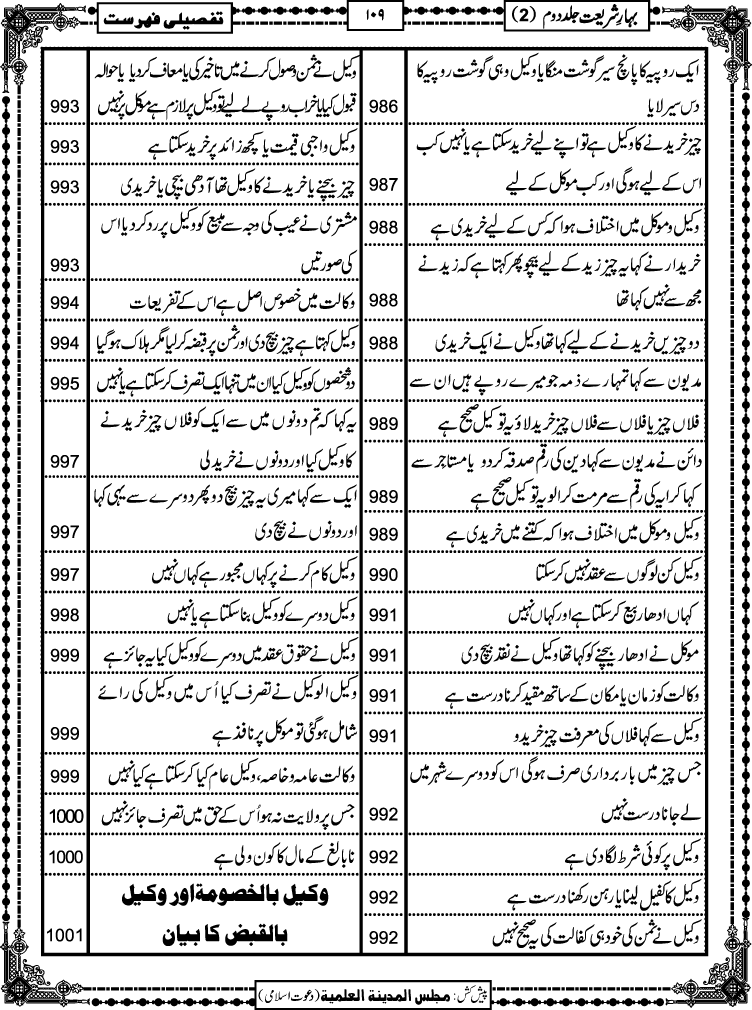 بہارِ شریعت جلد دوم (2)
۱۰۹
تفصیلی فہرست
ایک روپیہ کا پانچ سیر گوشت منگایا وکیل وہی گوشت روپیہ کا
دس سیر لایا 986
چیز خریدنے کا وکیل ہے تو اپنے لیے خرید سکتا ہے یا نہیں کب
اس کے لیے ہوگی اور کب موکل کے لیے 987
وکیل و موکل میں اختلاف ہوا کہ کس کے لیے خریدی ہے 988
خریدار نے کہا یہ چیز زید کے لیے بیچو پھر کہتا ہے کہ زید نے
مجھ سے نہیں کہا تھا 988
دو چیزیں خریدنے کے لیے کہا تھا وکیل نے ایک خریدی 988
مدیون سے کہا تمہارے ذمہ جو میرے روپے ہیں ان سے
فلاں چیز یا فلاں سے فلاں چیز خرید لاؤ یہ توکیل صحیح ہے 989
دائن نے مدیون سے کہا دین کی رقم صدقہ کردو یا مستاجر سے
کہا کرایہ کی رقم سے مرمت کرالو یہ توکیل صحیح ہے 989
وکیل و موکل میں اختلاف ہوا کہ کتنے میں خریدی ہے 989
وکیل کن لوگوں سے عقد نہیں کرسکتا 990
کہاں ادھار بیع کرسکتا ہے اور کہاں نہیں 991
موکل نے ادھار بیچنے کو کہا تھا وکیل نے نقد بیچ دی 991
وکالت کو زمان یا مکان کے ساتھ مقید کرنا درست ہے 991
وکیل سے کہا فلاں کی معرفت چیز خریدو 991
جس چیز میں بار برداری صرف ہوگی اس کو دوسرے شہر میں
لے جانا درست نہیں 992
وکیل پر کوئی شرط لگا دی ہے 992
وکیل کا کفیل لینا یا رہن رکھنا درست ہے 992
وکیل نے ثمن کی خود ہی کفالت کی یہ صحیح نہیں 992
وکیل نے ثمن وصول کرنے میں تاخیر کی یا معاف کردیا یا حوالہ
قبول کیا یا خراب روپے لے لیے تو وکیل پر لازم ہے موکل پر نہیں 993
وکیل واجبی قیمت یا کچھ زائد پر خرید سکتا ہے 993
چیز بیچنے یا خریدنے کا وکیل تھا آدھی بیچی یا خریدی 993
مشتری نے عیب کی وجہ سے مبیع کو وکیل پر رد کردیا اس
کی صورتیں 993
وکالت میں خصوص اصل ہے اس کے تفریعات 994
وکیل کہتا ہے چیز بیچ دی اور ثمن پر قبضہ کرلیا مگر ہلاک ہوگیا 994
دو شخصوں کو وکیل کیا ان میں تنہا ایک تصرف کرسکتا ہے یا نہیں 995
یہ کہا کہ تم دونوں میں سے ایک کو فلاں چیز خریدنے
کا وکیل کیا اور دونوں نے خریدلی 997
ایک سے کہا میری یہ چیز بیچ دو پھر دوسرے سے یہی کہا
اور دونوں نے بیچ دی 997
وکیل کام کرنے پر کہاں مجبور ہے کہاں نہیں 997
وکیل دوسرے کو وکیل بنا سکتا ہے یا نہیں 998
وکیل نے حقوق عقد میں دوسرے کو وکیل کیا یہ جائز ہے 999
وکیل الوکیل نے تصرف کیا اُس میں وکیل کی رائے
شامل ہوگئی تو موکل پر نافذ ہے 999
وکالت عامہ و خاصہ، وکیل عام کیا کرسکتا ہے کیا نہیں 999
جس پر ولایت نہ ہو اُس کے حق میں تصرف جائز نہیں 1000
نابالغ کے مال کا کون ولی ہے 1000
وکیل بالخصومۃ اور وکیل
بالقبض کا بیان 1001
پیش کش: مجلس المدینۃ العلمیۃ (دعوت اسلامی)